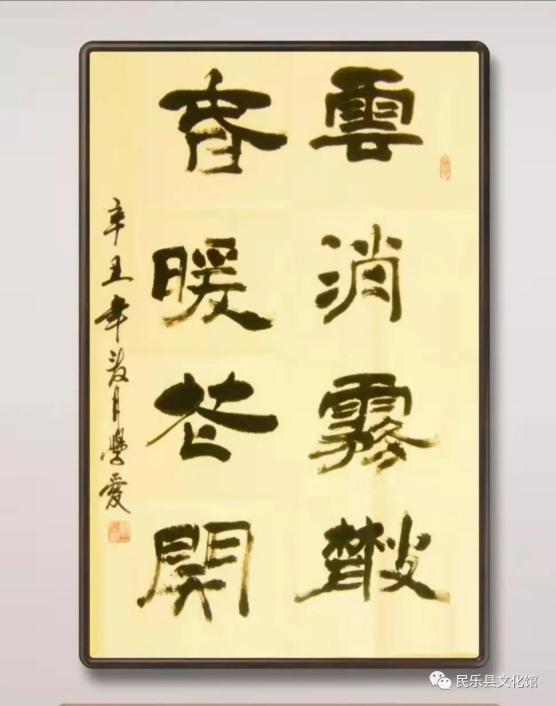 雲消霧散
春暖花開
辛丑年
月學愛
民乐县文化馆